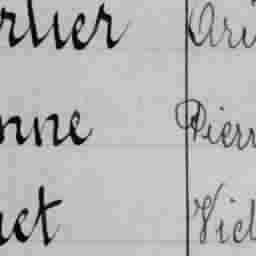 rlier Ari
nne Pierr
uet Vict